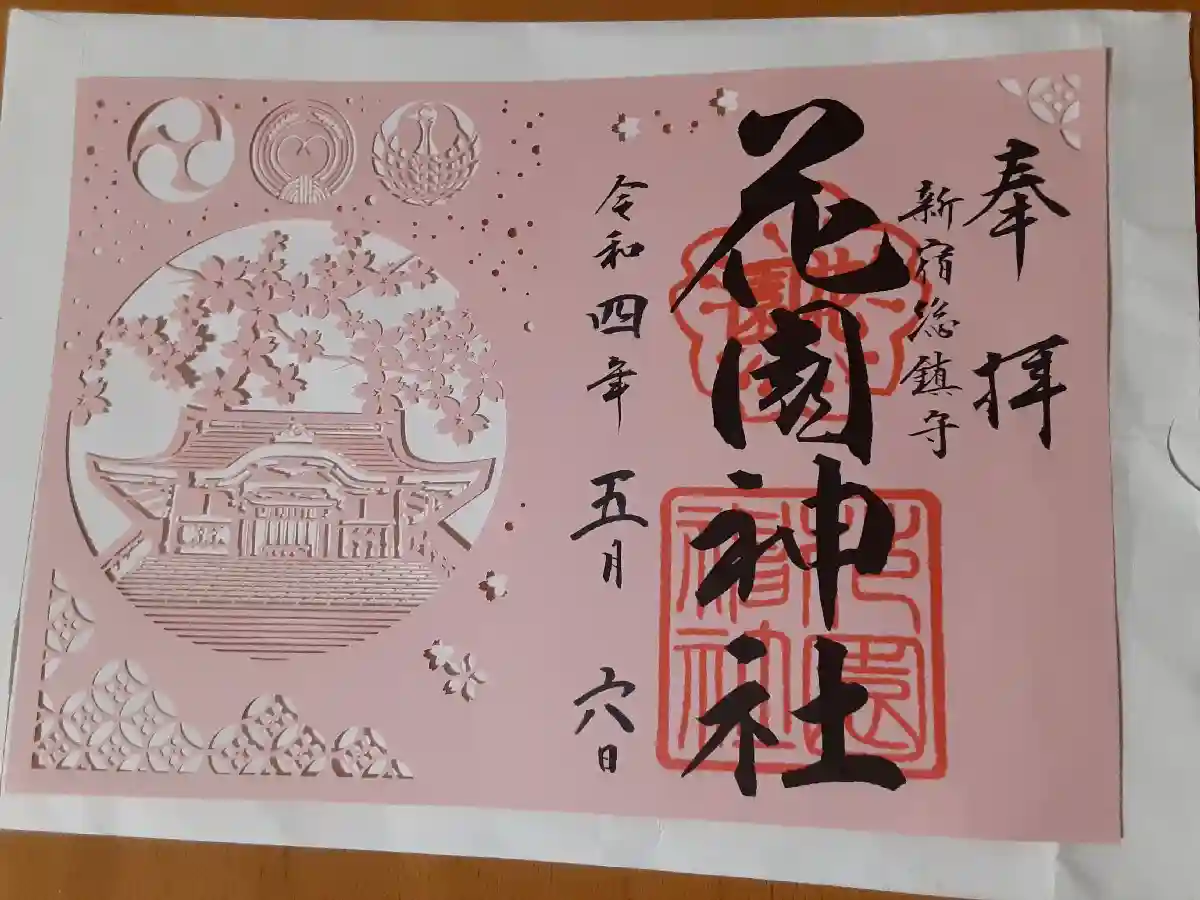 奉拝
新宿総鎮守
花園神社
令和四年五月六日
花園
花園神社